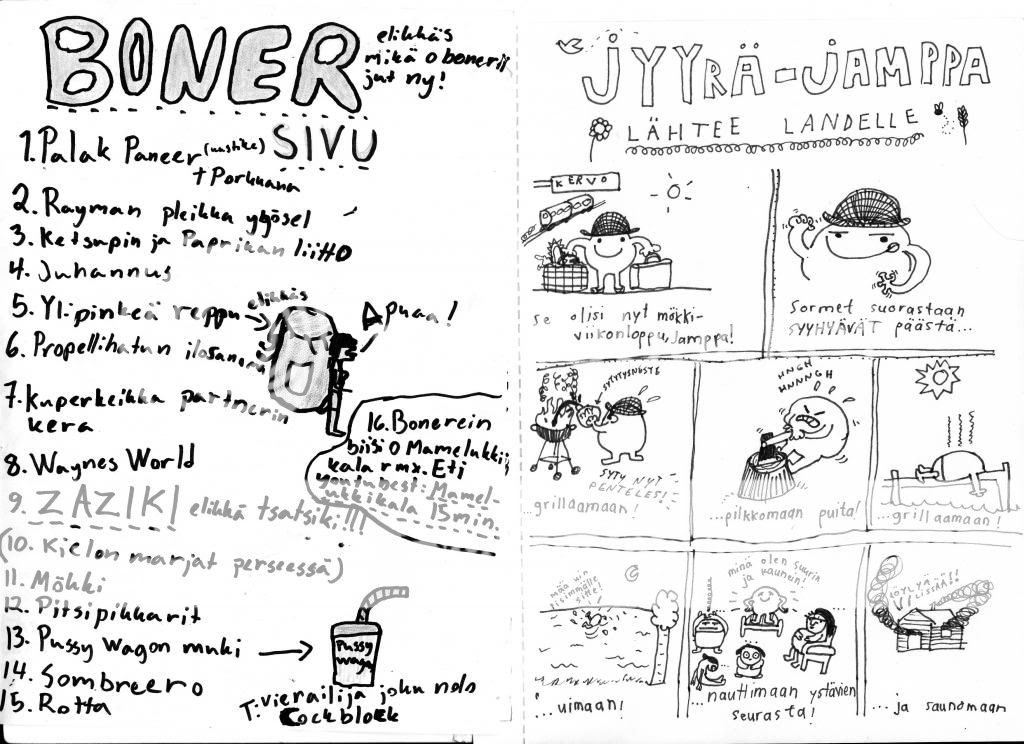 BONER
elikkäs
mikä o bonerii
jut ny!
SIVU
1. Palak Paneer (uustike)
+ Porkkana
2. Rayman pleikka ykkösel
3. Ketsupin ja Paprikan liitto
4. Juhannus
5. Ylipinkeä reppu elikkäs
Apuaa!
6. Propellihatun ilosanoma
7. Kuperkeikka partnerin
kera
8. Waynes World
9. ZAZIKI elikkä tsatsiki!!!
(10. Kielon marjat perseessä)
11. Mökki
12. Pitsipikkarit
13. Pussy Wagon muki
14. Sombreero
15. Rotta
16. Bonerein
biisi o Mamelukki
kala rmx. Eti
youtubest: Mamel-
ukkikala 15min.
Pussy
wago
T: vierailija joku nolo
Cockblock
JYYRÄ-JAMPPA
LÄHTEE LANDELLE
KERVO
se olisi nyt mökki-
viikonloppu, Jamppa!
Sormet suorastaan
SYYHYÄVÄT päästä...
SYTYTYSNESTE
SYTY NYT
PENTELES!
...grillaamaan!
HNGH
HNNNGH
...pilkkomaan puita!
...grillaamaan!
mää uin
pisimmälle
sitte!
...uimaan!
minä olen suurin
ja kaunein!
...nauttimaan ystävien
seurasta!
LÖYLYÄ!!!
VIELÄ LISSÄÄ!!
...ja saunomaan